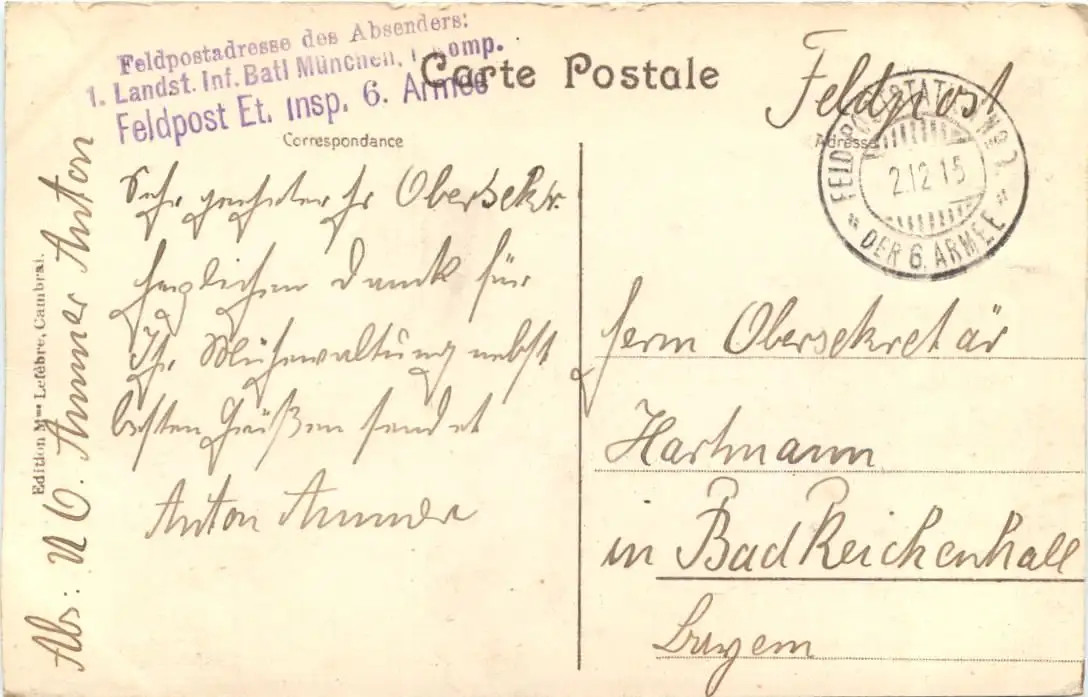 Feldpostadresse des Absenders:
1. Landst. Inf. Batl München, 1. Komp.
Feldpost Et. Insp. 6. Armee
Carte Postale
Feldpost
Correspondance
Adresse
FELDPOSTSTATION No 2.
2.12.15
* DER 6. ARMEE *
Sehr geehrter Hr Obersekr.
herzlichen Dank für
Ihr Mühewaltung nebst
besten Grüßen sendet
Anton Ammer
Herrn Obersekretär
Hartmann
in Bad Reichenhall
Bayern
Abs: U O. Ammer Anton
Edition Mme Lefèbre, Cambrai.